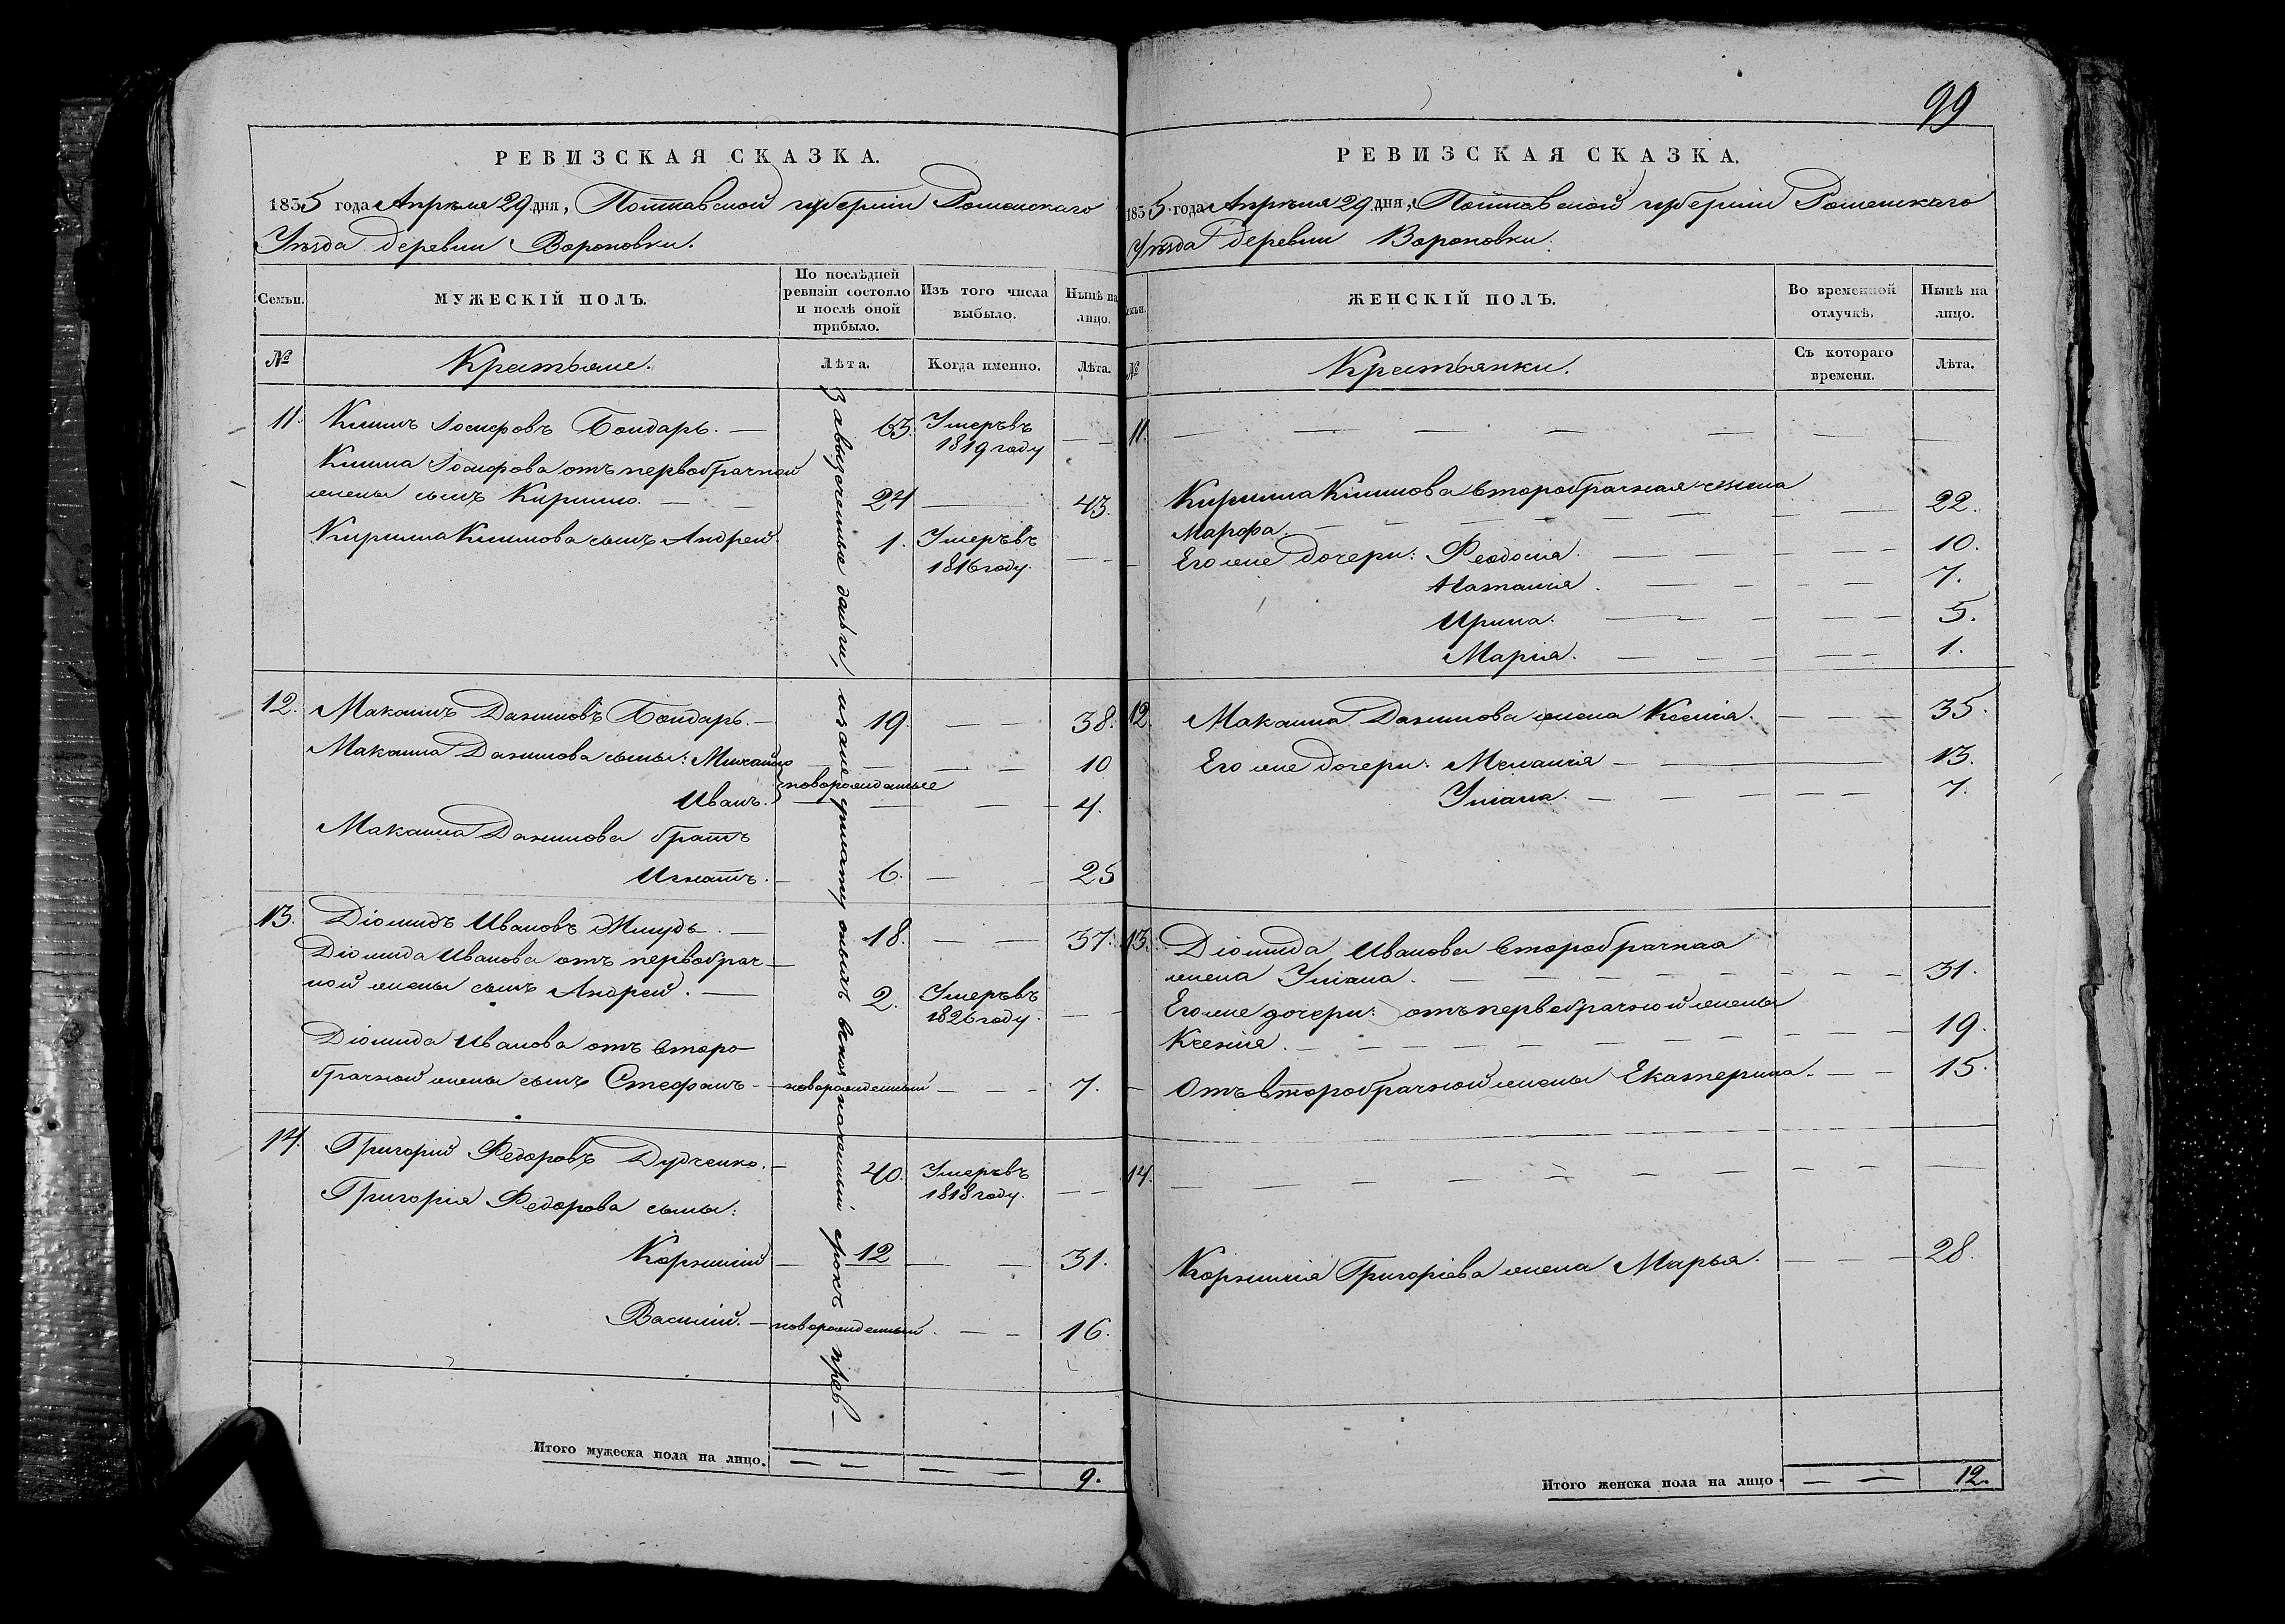 99
РЕВИЗСКАЯ СКАЗКА.
1835 года Апрѣля 29 дня, Полтавской губерніи Роменскаго
Уѣзда деревни Вороновки.
Семьи.
МУЖЕСКІЙ ПОЛЪ.
По послѣдней ревизіи состояло и послѣ оной прибыло.
Изъ того числа выбыло.
Нынѣ на лицо.
№
Крестьяне.
Лѣта.
Когда именно.
Лѣта.
11. Климъ Іосифовъ Бондарь. — 65. Умеръ въ 1819 году — —
Клима Іосифова отъ первобрачной
жены сынъ Кирилло. — — 24 — 43.
Кирилла Климова сынъ Андрей 1. Умеръ въ 1816 году. — —
12. Макаимъ Даниловъ Бондарь. — 19. — — 38.
Макаима Данилова сыны: Михайло — — — — 10
новорожденные
Иванъ. — — — — 4.
Макаима Данилова братъ
Игнатъ. — 6. — — 25
13. Діомидъ Ивановъ Жмудь. — 18. — — 37.
Діомида Иванова отъ первобрач—
ной жены сынъ Андрей. — 2. Умеръ въ 1826 году. — —
Діомида Иванова отъ второ
брачной жены сынъ Стефанъ — новорожденный — — — 7.
14. Григорій Федоровъ Дудченко. — 40. Умеръ въ 1818 году. — —
Григорія Федорова сыны:
Корнилій — 12 — — 31.
Василій. — новорожденный. — — 16.
Итого мужеска пола на лицо. — — — — 9.
за введеніемъ
оныхъ
срокъ
РЕВИЗСКАЯ СКАЗКА.
1835 года Апрѣля 29 дня, Полтавской губерніи Роменскаго
Уѣзда деревни Вороновки.
Семьи.
ЖЕНСКІЙ ПОЛЪ.
Во временной отлучкѣ.
Нынѣ на лицо.
№
Крестьянки.
Съ котораго времени.
Лѣта.
11. — — — — — — — —
Кирилла Климова второбрачная жена
Марфа. — — — — — — — 22.
Его же дочери: Феодосія. — — — — — 10.
Наталія. — — — — — 7.
Ирина. — — — — — 5.
Марія. — — — — — 1.
12. Макаима Данилова жена Ксенія. — — — 35.
Его же дочери: Меланія — — — 13.
Уліана. — — — — — 7.
13. Діомида Иванова второбрачная
жена Уліана. — — — — — — — 31.
Его же дочери: отъ первобрачной жены
Ксенія. — — — — — — — 19.
Отъ второбрачной жены Екатерина. — — 15.
14. — — — — — — — —
Корнилія Григоріева жена Марья. — — — 28.
Итого женска пола на лицо. — — 12.